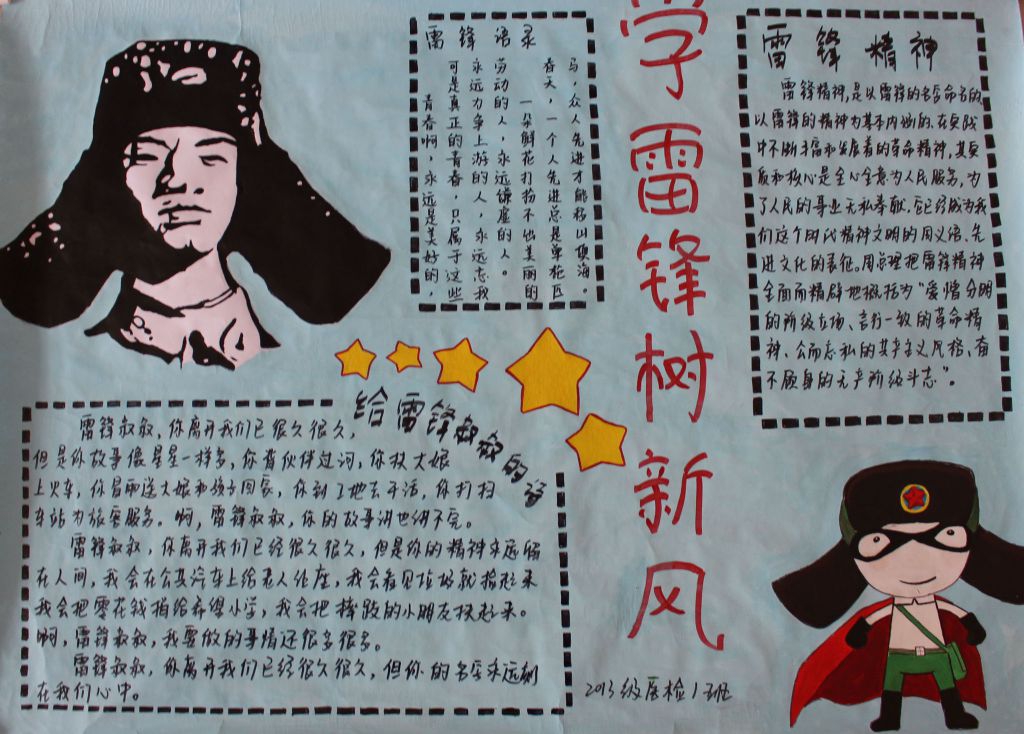 学雷锋树新风
雷锋语录
青春啊，永远是美好的，
可是真正的青春，只属于这些
永远力争上游的人，永远忘我
劳动的人，永远谦虚的人。
一朵鲜花打扮不出美丽的
春天，一个人先进总是单枪匹
马，众人先进才能移山填海。
雷锋精神
雷锋精神，是以雷锋的名字命名的，
以雷锋的精神为基本内涵的、在实践
中不断丰富和发展着的革命精神，其实
质和核心是全心全意为人民服务，为
了人民的事业无私奉献。它已经成为我
们这个时代精神文明的同义语、先
进文化的表征。周总理把雷锋精神
全面而精辟地概括为“爱憎分明
的阶级立场、言行一致的革命精
神、公而忘私的共产主义风格、奋
不顾身的无产阶级斗志”。
给雷锋叔叔的诗
雷锋叔叔，你离开我们已很久很久，
但是你故事像星星一样多，你背伙伴过河，你扶大娘
上火车，你冒雨送大娘和孩子回家，你到工地去干活，你打扫
车站为旅客服务。啊，雷锋叔叔，你的故事讲也讲不完。
雷锋叔叔，你离开我们已经很久很久，但是你的精神永远留
在人间，我会在公共汽车上给老人让座，我会看见垃圾就捡起来
我会把零花钱捐给希望小学，我会把摔跤的小朋友扶起来。
啊，雷锋叔叔，我要做的事情还很多很多。
雷锋叔叔，你离开我们已经很久很久，但你的名字永远刻
在我们心中。
2013级医检1班